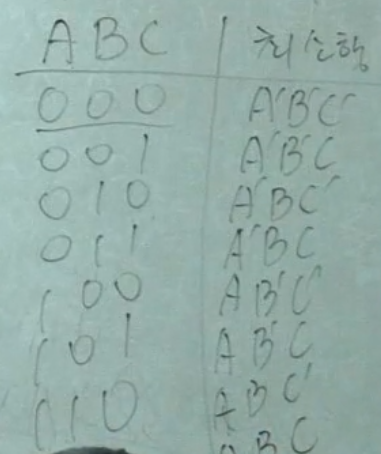 A B C | 최소항
0 0 0 A'B'C'
0 0 1 A'B'C
0 1 0 A'BC'
0 1 1 A'BC
1 0 0 AB'C'
1 0 1 AB'C
1 1 0 ABC'
ABC